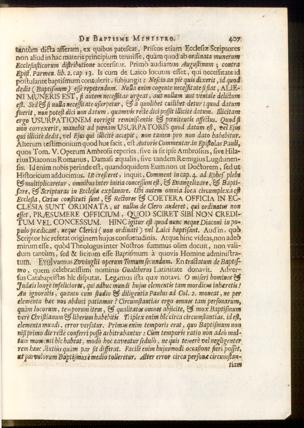 DE BAPTISMI MINISTRO. 407
tantùm dicta asseram, ex quibus pateseat, Priscos etiam Ecclesiæ Scriptores
non aliud in hac materia principium tenuisse, quàm quod ab ordinata munerum
Ecclesiasticorum distributione accersitur. Primò audiamus Augustinum; contra
Epist. Parmen. lib. 2. cap. 13. Is cum de Laico locutus esset, qui necessitate id
postulante baptismum contulerit, subjungit: Nescio an pie quis dixerit, id quod
dedit (Baptismum) esse repetendum. Nulla enim cogente necessitate si fiat, ALIE-
NI MUNERIS EST, si autem necessitas urgeat, aut nullum aut veniale delictum
est. Sed & si nulla necessitate usurpetur, & à quolibet cuilibet detur: quod datum
fuerit, non potest dici non datum, quamvis recte dici possit illicite datum. Illicitam
ergo USURPATIONEM corrigit reminiscentis & pœnitentis affectus. Quod si
non correxerit, manebit ad pœnam USURPATORIS quod datum est, vel ejus
qui illicite dedit, vel ejus qui illicite accepit, non tamen pro non dato habebitur.
Alterum testimonium quod huc facit, est Autoris Commentar. in Epistolas Pauli,
quos Tom. V. Operum Ambrosii reperies, sive is sit ipse Ambrosius, sive Hila-
rius Diaconus Romanus, Damasi æqualis, sive tandem Remigius Lugdunen-
sis. Id enim nobis perinde est, quandoquidem Eum non ut Doctorem, sed ut
Historicum adducimus. Ut cresceret, inquit, Comment. in cap. 4. ad Ephes. plebs
& multiplicaretur, omnibus inter initia concessum est, & Evangelizare, & Bapti-
sare, & Scripturas in Ecclesia explanare. Ubi autem omnia loca circumplexa est
Ecclesia, Cœtus constituti sunt, & Rectores & COETERA OFFICIA IN EC-
CLESIA SUNT ORDINATA, ut nullus de Clero auderet, qui ordinatus non
esset, PRÆSUMERE OFFICIUM, QUOD SCIRET SIBI NON CREDI-
TUM VEL CONCESSUM. HINC igitur est quod nunc neque Diaconi in po-
pulo prædicant, neque Clerici (non ordinati) vel Laici baptisent. Aud in, quod
Scriptor hic referat originem hujus consuetudinis. Atque hinc videas, non adeò
mirum esse, quòd Theologi inter Nostros summus olim docuit, non vali-
dum tantùm, sed & licitum esse Baptismum à quovis Homine administra-
tum. Evolvamus Zwinglii operum Tomum secundum. En tractatum de Baptis-
mo, quem celebratissimi nominis Gualtherus Latinitate donavit. Adver-
sus Catabaptistas hic disputat. Legamus ista quæ notavi. O miseri homines &
Judæis longè infeliciores, qui adhuc mundi hujus elementis tam mordicus inhæretis?
An ignoratis, quanto cum studio & diligentia Paulus ad Col. 2. moneat, ne per
elementa hæc nos abduci patiamur? Circumstantias ergo omnes tam personarum,
quàm locorum, temporum item, & qualitatum omnes abjicite, & mox Baptismum
veri Christianum & liberum habebitis. Triplex enim hic circa circumstantias, id est,
elementa mundi, error versatur. Primus enim temporis erat, quo Baptismum non
nisi primo die recte conferri posse arbitrabantur: Cùm temporis ratio non adeò mul-
tum momenti hic habeat, modò hoc caveatur sedulò, ne quis temerè vel negligenter
rem hanc divinitus quàm par sit differat. Facilè enim hujusmodi occasione fieri posset,
ut parvulorum Baptismus è medio tolleretur. Alter error circa personæ circumstan-
tiam